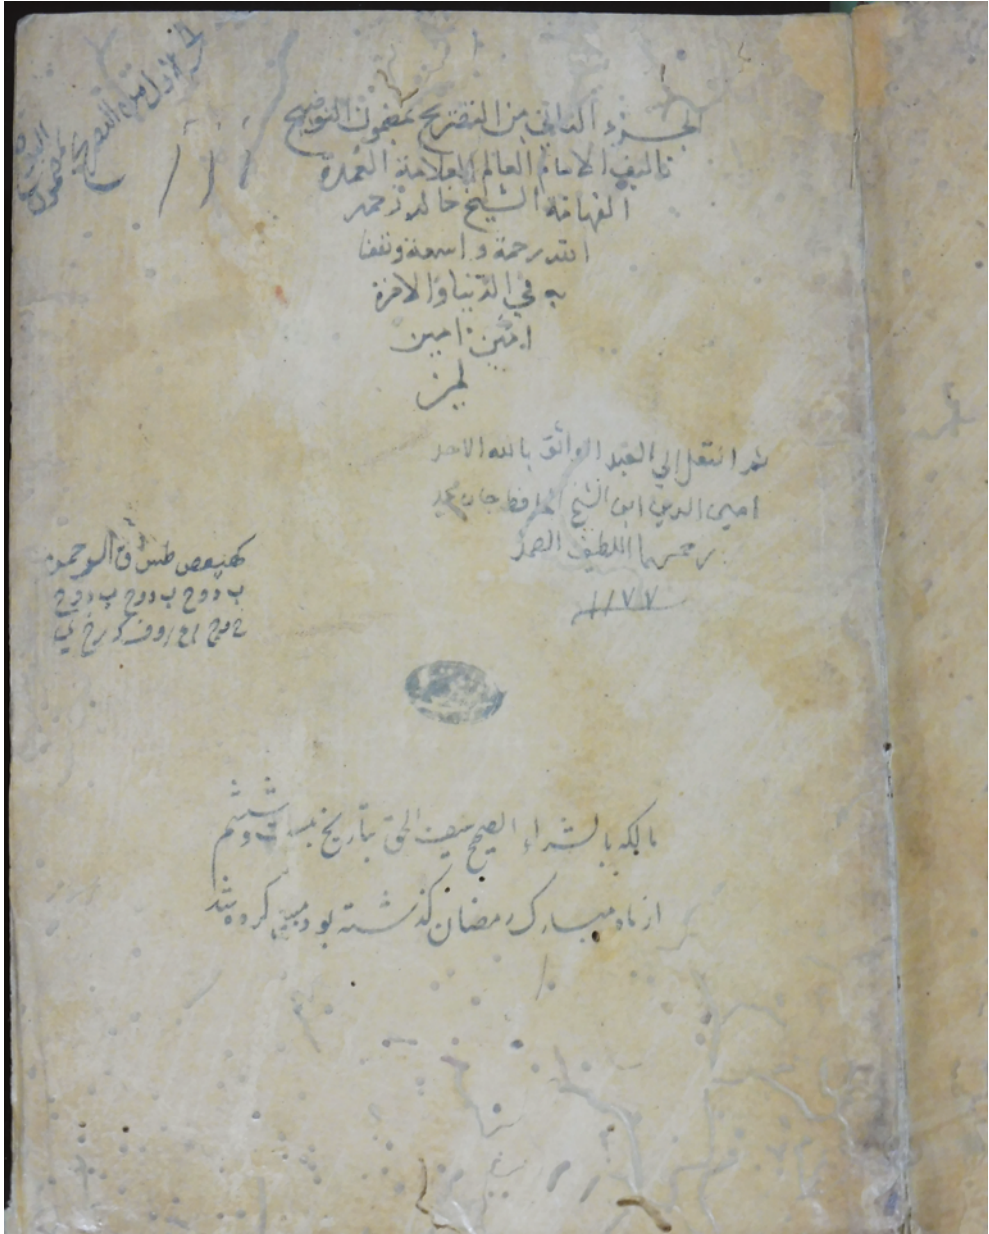 الجزء الثاني من التصريح بمضمون التوضيح
تاليف الامام العالم العلامة العمدة
الفهامة الشيخ خالد رحمه
الله رحمة واسعة ونفعنا
به في الدنيا والاخرة
امين امين
ثم انتقل الي العبد الواثق بالله الاحد
امين الدين ابن الشيخ الحافظ جان محمد
رحمهما اللطيف الصمد
١١٧٧
كهيعص طس ق الرحمن
ب د و ح ب د و ح ب د و ح
مالكه بالشراء الصحيح الحق بتاريخ بست و ششم
از ماه مبارك رمضان كذشته بود كرده شد
الاول من التصريح
بمضمون